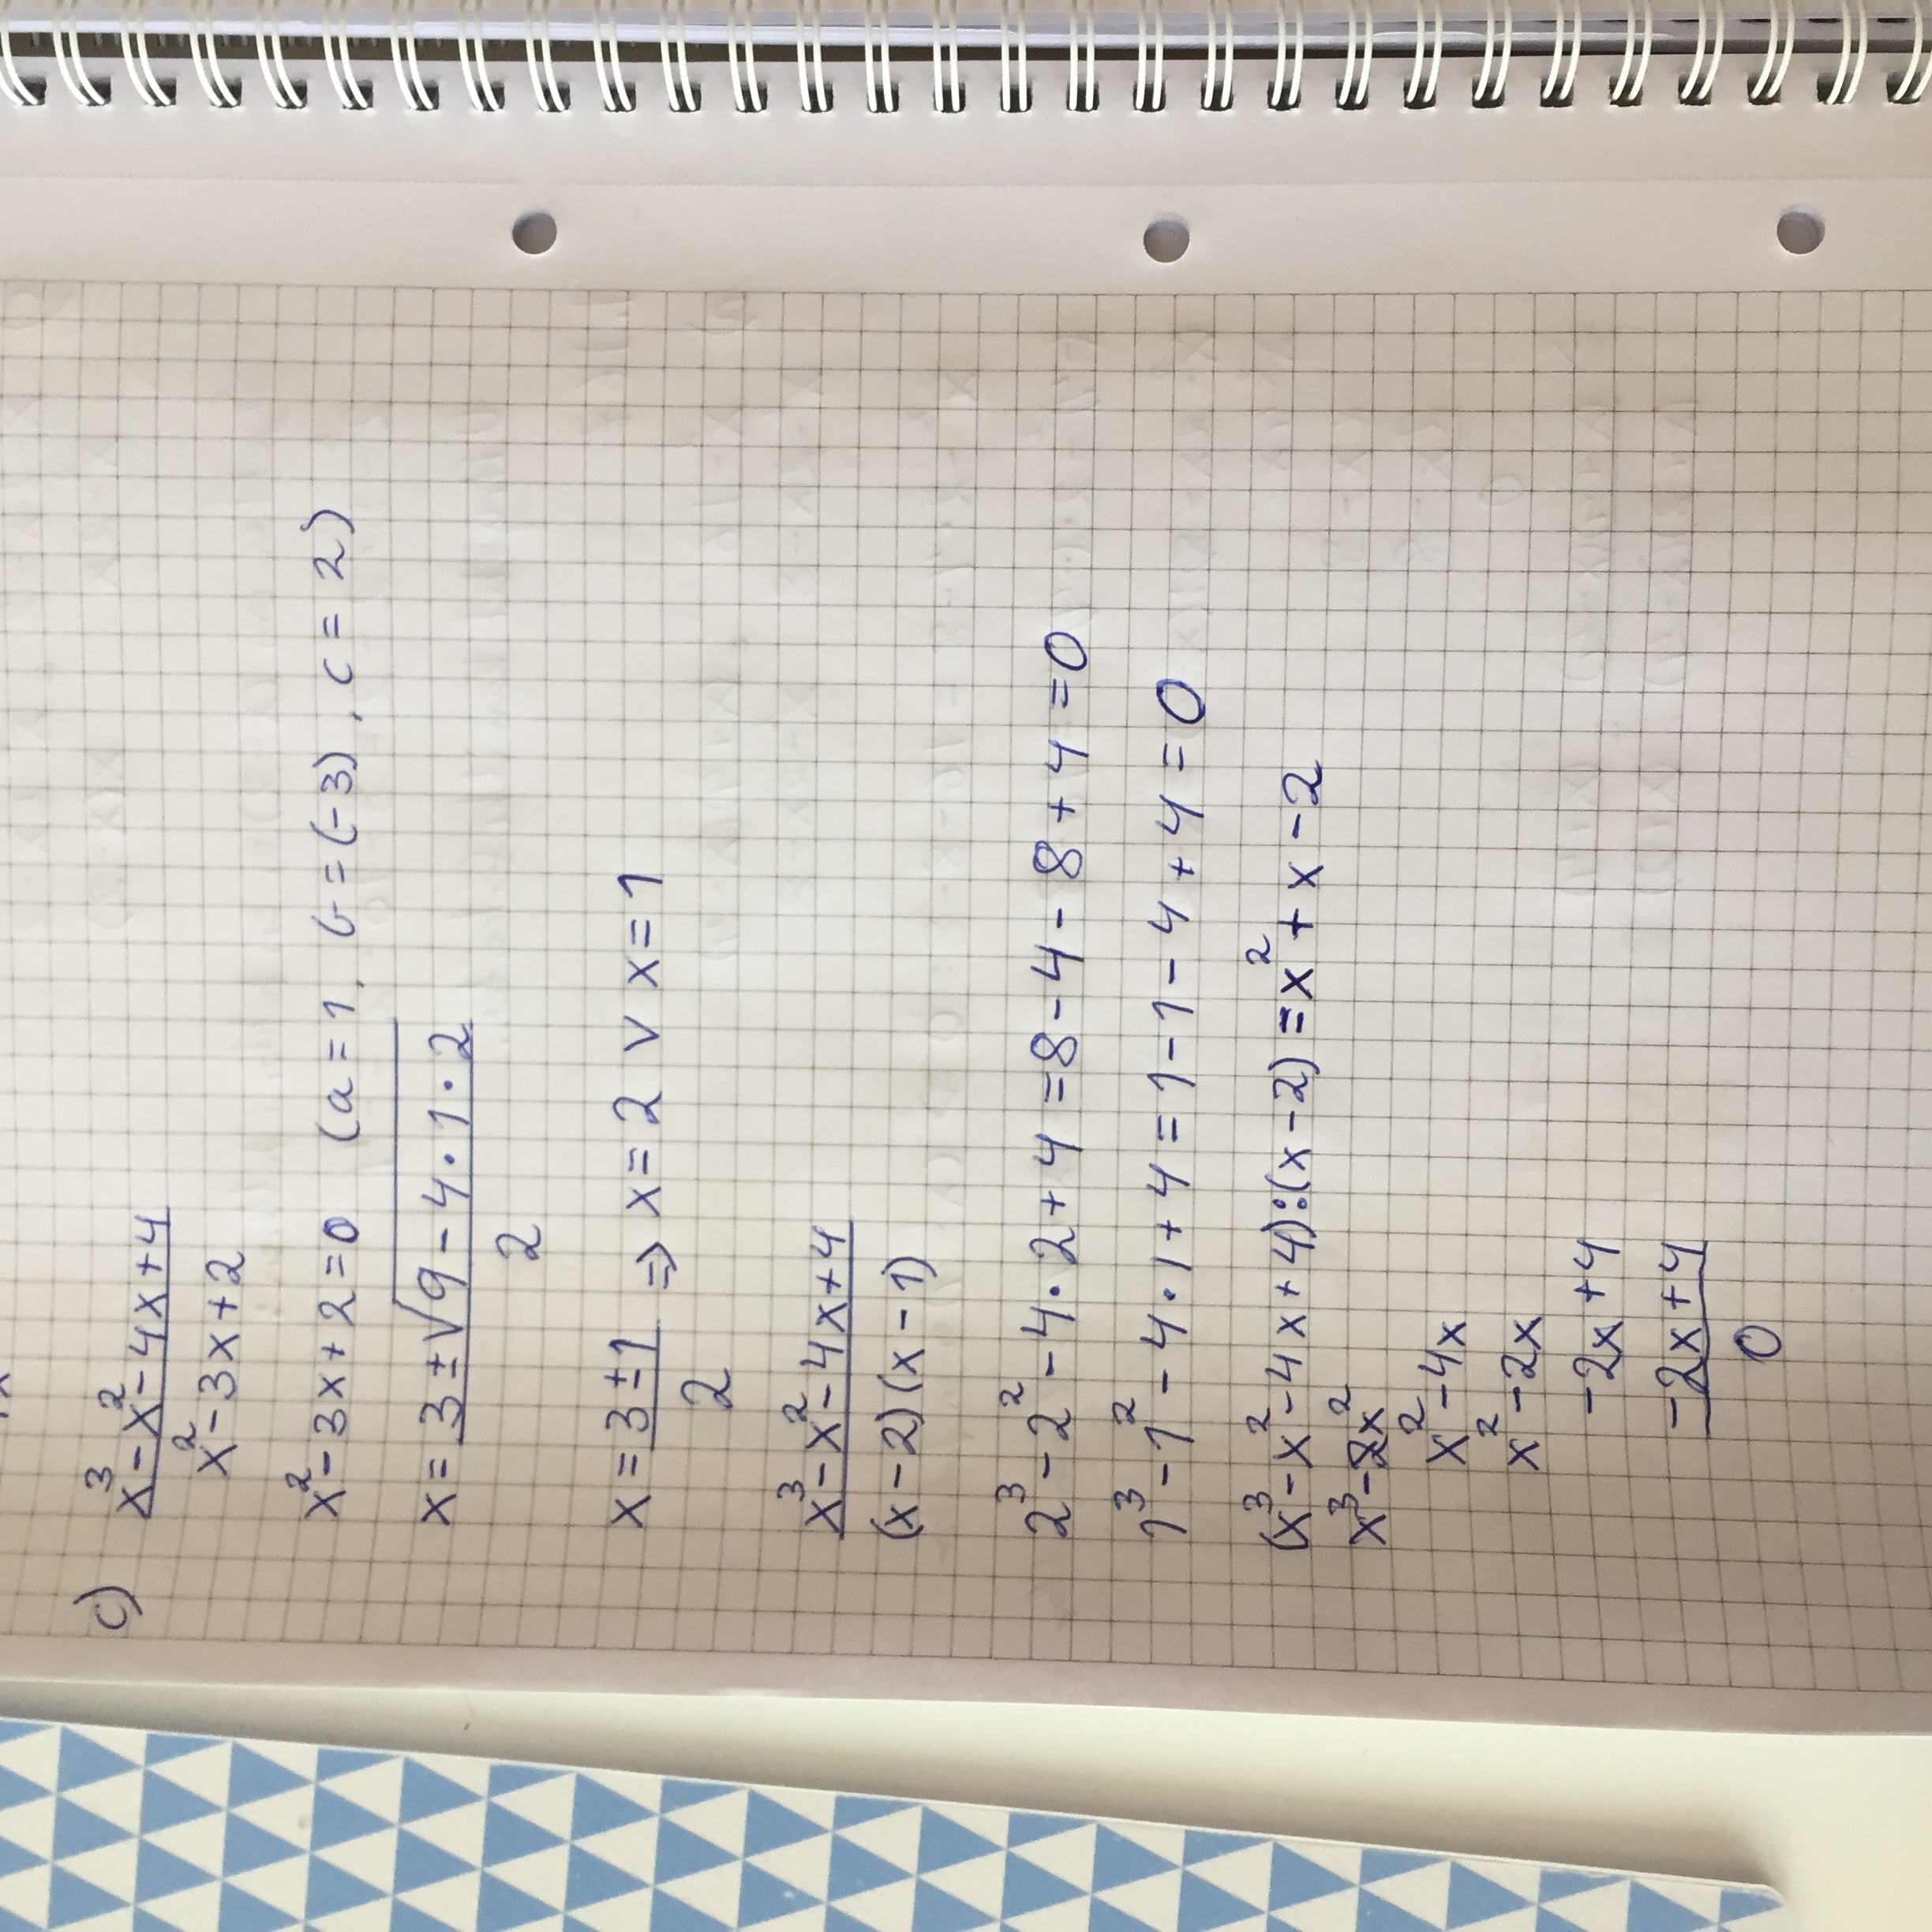 c) x³-x²-4x+4
x²-3x+2
x²-3x+2=0 (a=1, b=(-3), c=2)
x=3±√9-4·1·2
2
x=3±1 => x=2 v x=1
2
x³-x²-4x+4
(x-2)(x-1)
2³-2²-4·2+4=8-4-8+4=0
1³-1²-4·1+4=1-1-4+4=0
(x³-x²-4x+4):(x-2)=x²+x-2
x³-2x²
x²-4x
x²-2x
-2x+4
-2x+4
0